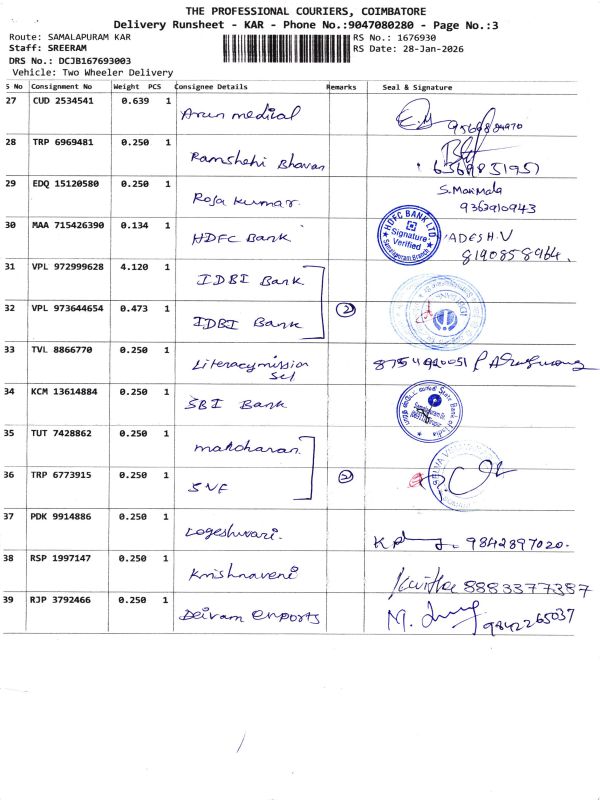 THE PROFESSIONAL COURIERS, COIMBATORE
Delivery Runsheet - KAR - Phone No.:9047080280 - Page No.:3
Route: SAMALAPURAM KAR
RS No.: 1676930
Staff: SREERAM
RS Date: 28-Jan-2026
DRS No.: DCJB167693003
Vehicle: Two Wheeler Delivery
S No Consignment No Weight PCS Consignee Details Remarks Seal & Signature
27 CUD 2534541 0.639 1 Arun medical
28 TRP 6969481 0.250 1 Ramshehi Bhavan 6369851951
29 EDQ 15120580 0.250 1 Roja kumar. S. Manimala
9362910943
30 MAA 715426390 0.134 1 HDFC Bank HDFC BANK LTD Signature Verified Samalapuram Branch ADESH.V
8190858964.
31 VPL 972999628 4.120 1 IDBI Bank
32 VPL 973644654 0.473 1 IDBI Bank 2
33 TVL 8866770 0.250 1 Literacymission
Sel
34 KCM 13614884 0.250 1 SBI Bank State Bank of India
35 TUT 7428862 0.250 1 manoharan
36 TRP 6773915 0.250 1 SVF 2
37 PDK 9914886 0.250 1 Logeshwari. 9842897020.
38 RSP 1997147 0.250 1 Krishnaveni Kavitha 8883377387
39 RJP 3792466 0.250 1 Deivam exports 9842265037